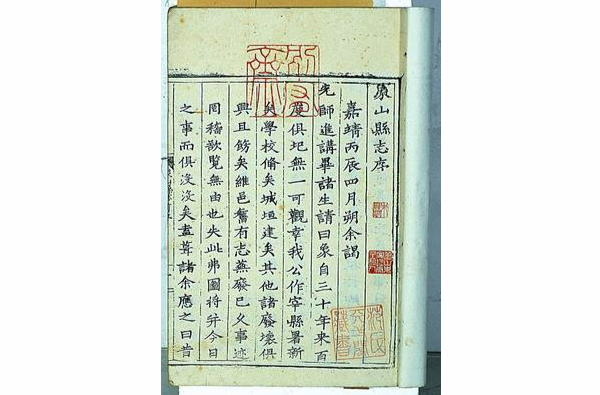 象山縣志序
嘉靖丙辰四月朔余謁
先師進講畢諸生請曰象自三十年來百
度俱圮無一可觀幸我公作宰縣署新
矣學校脩矣城垣建矣其他諸廢壞俱
興且飭矣維邑舊有志蕪廢已久事迹
罔稽欲覽無由也失此弗圖將并今日
之事而俱沒沒矣盍葺諸余應之曰昔
別宥齋